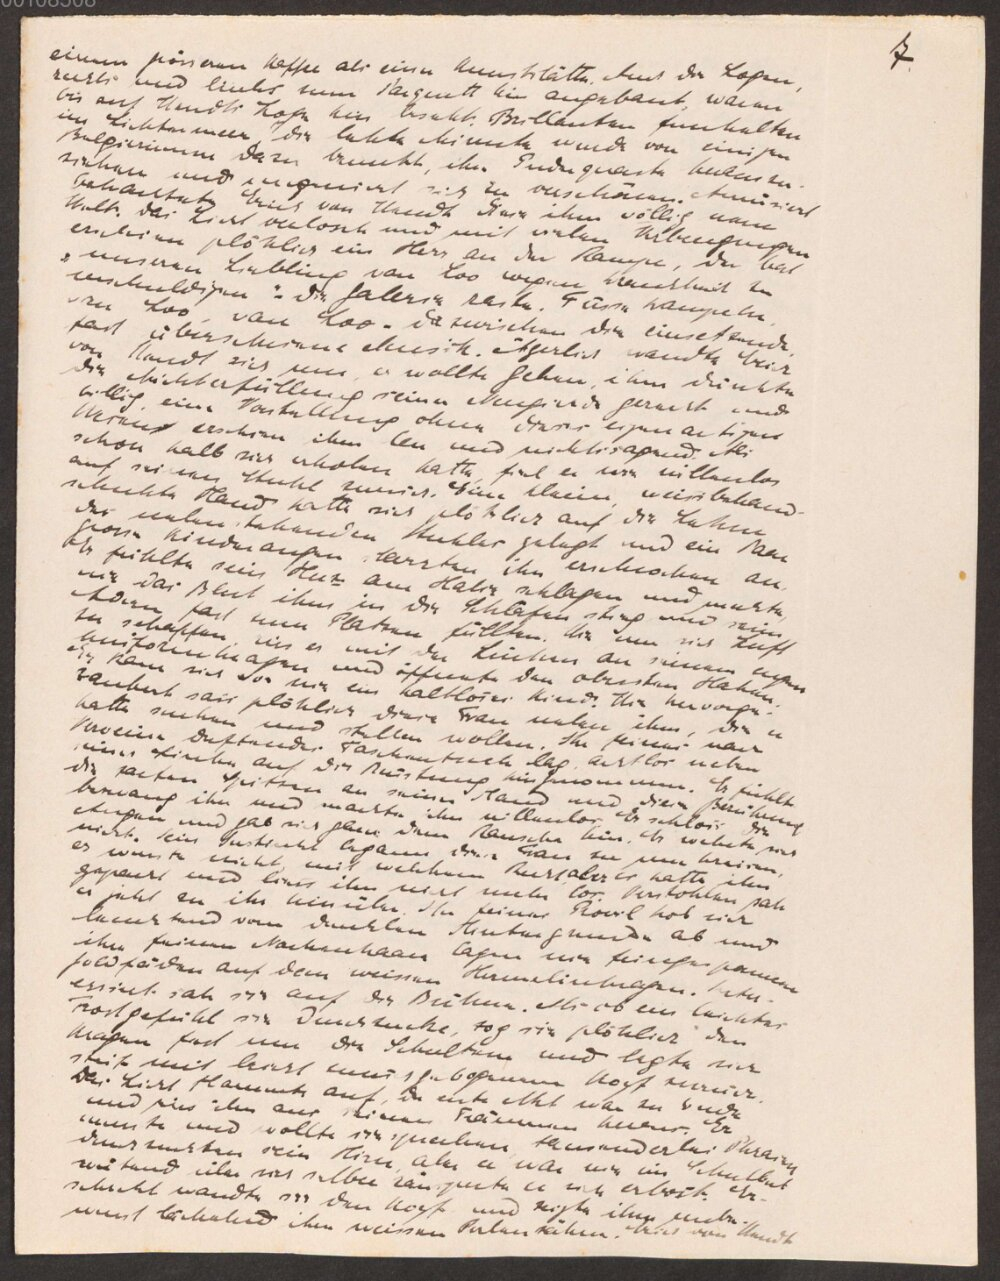 00108508
7.
einem grösseren Kaffee als einer Kunststätte. Aus den Logen,
rechts und links vom Parquett hin angebaut, waren
bis auf Handts Loge hin besetzt. Brillanten funkelten
im Lichtermeer, die letzte Minute wurde von einigen
Bulgarinnen dazu benutzt, ihre Puderquaste
ziehen und ungeniert sich zu verschönen. Amüsiert
betrachtete Erich von Handt diese ihm völlig neue
Welt. Das Licht verlosch und mit vielen Verbeugungen
erschien plötzlich ein Herr an der Rampe, der bat
„unseren Liebling van Loo wegen Krankheit zu
entschuldigen“. Die Galerie raste. Füsse trampeln,
van Loo, van Loo - dazwischen die einsetzende,
fast überschriene Musik. Ärgerlich wandte Erich
von Handt sich um, er wollte gehen, ihm dünkte
die Nichterfüllung seiner Neugierde gerecht und
billig, eine Vorstellung ohne dieses eigenartigen
Weines erschien ihm leer und nichtssagend. Als
schon halb sich erhoben hatte fiel er wie willenlos
auf seinen Stuhl zurück. Eine kleine, weissbehand-
schuhte Hand hatte sich plötzlich auf die Lehne
des neben stehenden Stuhles gelegt und ein Paar
grosse Kinderaugen starrten ihn erschrocken an.
Er fühlte sein Herz am Halse schlagen und merkte,
wie das Blut ihm in die Schläfen stieg und seine
Adern fast zum Platzen füllten. Wie um sich Luft
zu schaffen, riss er mit der Linken an seinem engen
Uniformkragen und öffnete den obersten Haken.
Er kam sich vor wie ein haltloses Kind. Wie hervorge-
zaubert sass plötzlich diese Frau neben ihm, die er
hatte suchen und stellen wollen. Ihr feines nach
Verveine duftendes Taschentuch lag achtlos neben
seiner Linken auf der Brüstung hingenommen. Er fühlte
die zarten Spitzen an seiner Hand und diese Berührung
bezwang ihn und machte ihn willenlos. Er schloss die
Augen und gab sich ganz dem Rausche hin. Er wehrte sich
nicht. Sein Instinkt begann diese Frau zu umkreisen,
er wusste nicht, mit welchem es hatte ihn
gepackt und liess ihn nicht mehr los. Verstohlen sah
er jetzt zu ihr hinüber. Ihr feines Profil hob sich
leuchtend vom dunklen Hintergrunde ab und
ihre feinen Nackenhaare lagen wie feingesponnene
Goldfäden auf dem weissen Hermelinkragen. Inter-
essiert sah sie auf die Bühne. Als ob ein leichtes
Frostgefühl sie durchzucke, zog sie plötzlich den
Kragen fest um die Schultern und legte sich
steif mit leicht gebogenem Kopf zurück.
Das Licht flammte auf, der erste Akt war zu Ende
und riss ihn aus seinen Träumen heraus. Er
musste und wollte sie sprechen, tausenderlei Phrasen
durchzuckten sein Hirn, aber er war wie ein Schulbub
wütend über sich selber räusperte er sich erbost. Er-
schreckt wandte sie den Kopf und zeigte ihm unbe-
wusst lächelnd ihre weissen Perlenzähne. Erich von Handt